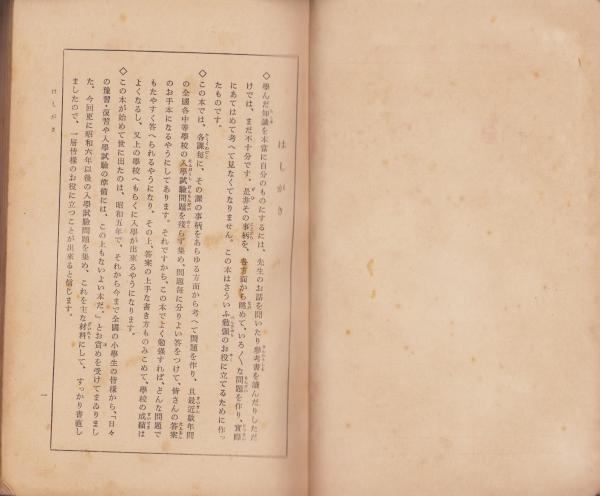 はしがき
◇學んだ知識を本當に自分のものにするには、先生のお話を聞いたり參考書を讀んだりしただ
けでは、まだ不十分です。是非その事柄を、各方面から眺めて、いろ〳〵な問題を作り、實際
にあてはめて考へて見なくてなりません。この本はさういふ勉強のお役に立てるために作っ
たものです。
◇この本では、各課每に、その課の事柄をあらゆる方面から考へて問題を作り、且最近數年間
の全國各中等學校の入學試驗問題を殘らず集め、問題每に分りよい答をつけて、皆さんの答案
のお手本になるやうにしてあります。それですから、この本でよく勉強すれば、どんな問題で
もたやすく答へられるやうになり、その上、答案の上手な書き方ものみこめて、學校の成績は
よくなるし、又上の學校へもらくに入學が出來るやうになります。
◇この本が始めて世に出たのは、昭和五年で、それから今まで全國の小學生の皆樣から、「日々
の豫習・復習や入學試驗の準備には、この上もないよい本だ。」とお賞めを受けてまゐりまし
た。今回更に昭和六年以後の入學試驗問題を集め、これを主な材料にして、すっかり書直し
ましたので、一層皆樣のお役に立つことが出來ると信じます。
はしがき
一